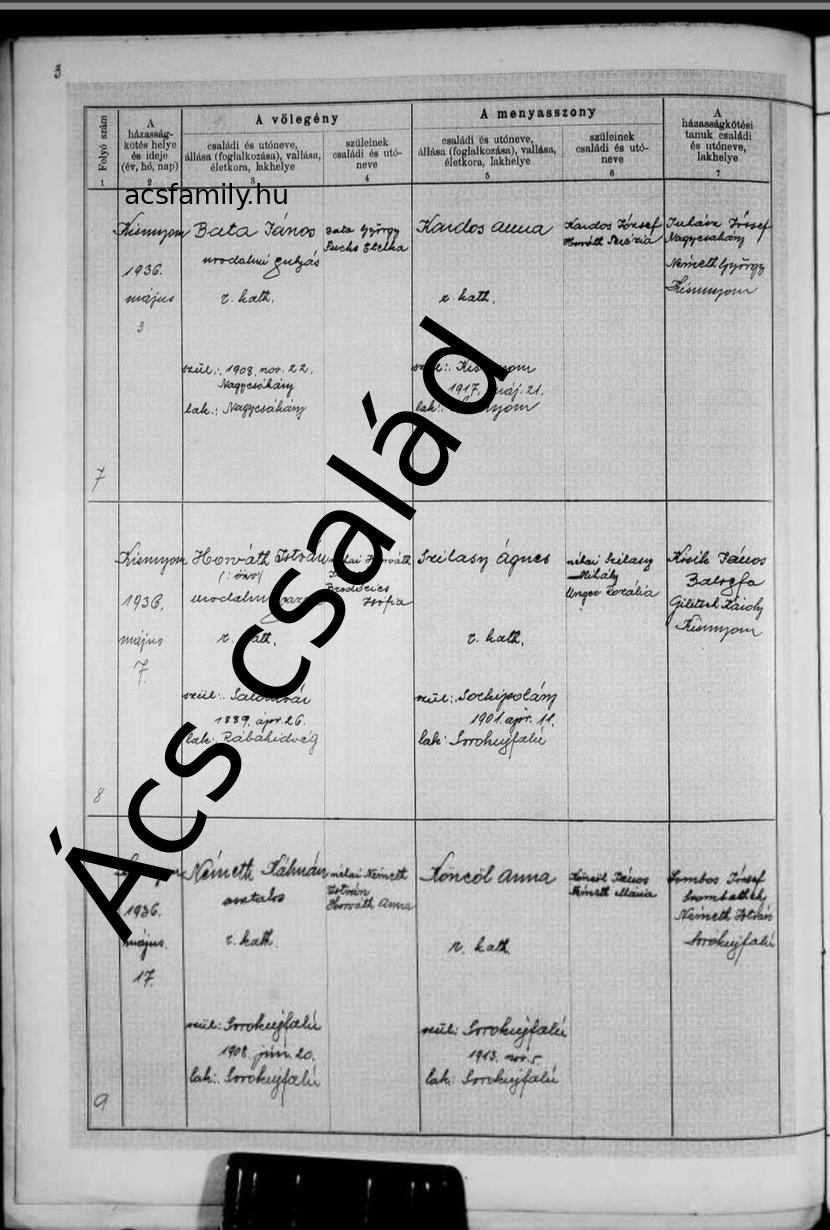 3
Folyó szám
A házasság-
kötés helye
és ideje
(év, hó, nap)
A vőlegény
családi és utóneve,
állása (foglalkozása), vallása,
életkora, lakhelye
szüleinek
családi és utó-
neve
A menyasszony
családi és utóneve,
állása (foglalkozása), vallása,
életkora, lakhelye
szüleinek
családi és utó-
neve
A
házasságkötési
tanuk családi
és utóneve,
lakhelye
1 2 3 4 5 6 7
acsfamily.hu
Ács család
7
Kisunyom
1936.
május
3.
Bata János
uradalmi gulyás
r. kath.
szül.: 1908. nov. 22.
Nagycsákány
lak.: Nagycsákány
Bata György
Fuchs Etelka
Kardos Anna
r. kath.
1917. máj. 21.
lak:
Kardos József
Horváth Terézia
Juhász József
Nagycsákány
Németh György
Kisunyom
8
Kisunyom
1936.
május
7.
Horváth István
(: özv)
uradalmi
r. kath.
szül:
1889. ápr. 26.
lak: Rábahidvég
néhai Horváth
Zsófia
Szilasy Ágnes
r. kath.
szül: Sorkipolány
1901. ápr. 11.
lak: Sorokujfalú
néhai Szilasy
Mihály
Unger Rozália
János
Balogfa
Károly
Kisunyom
9
1936.
május.
17.
Németh Kálmán
asztalos
r. kath.
szül: Sorokujfalú
1908. jún. 20.
lak: Sorokujfalú
néhai Németh
István
Horváth Anna
Köncöl Anna
r. kath.
szül: Sorokujfalú
1913. nov. 5.
lak: Sorokujfalú
Köncöl János
Németh Mária
Sombos József
Szombathely
Németh István
Sorokujfalú